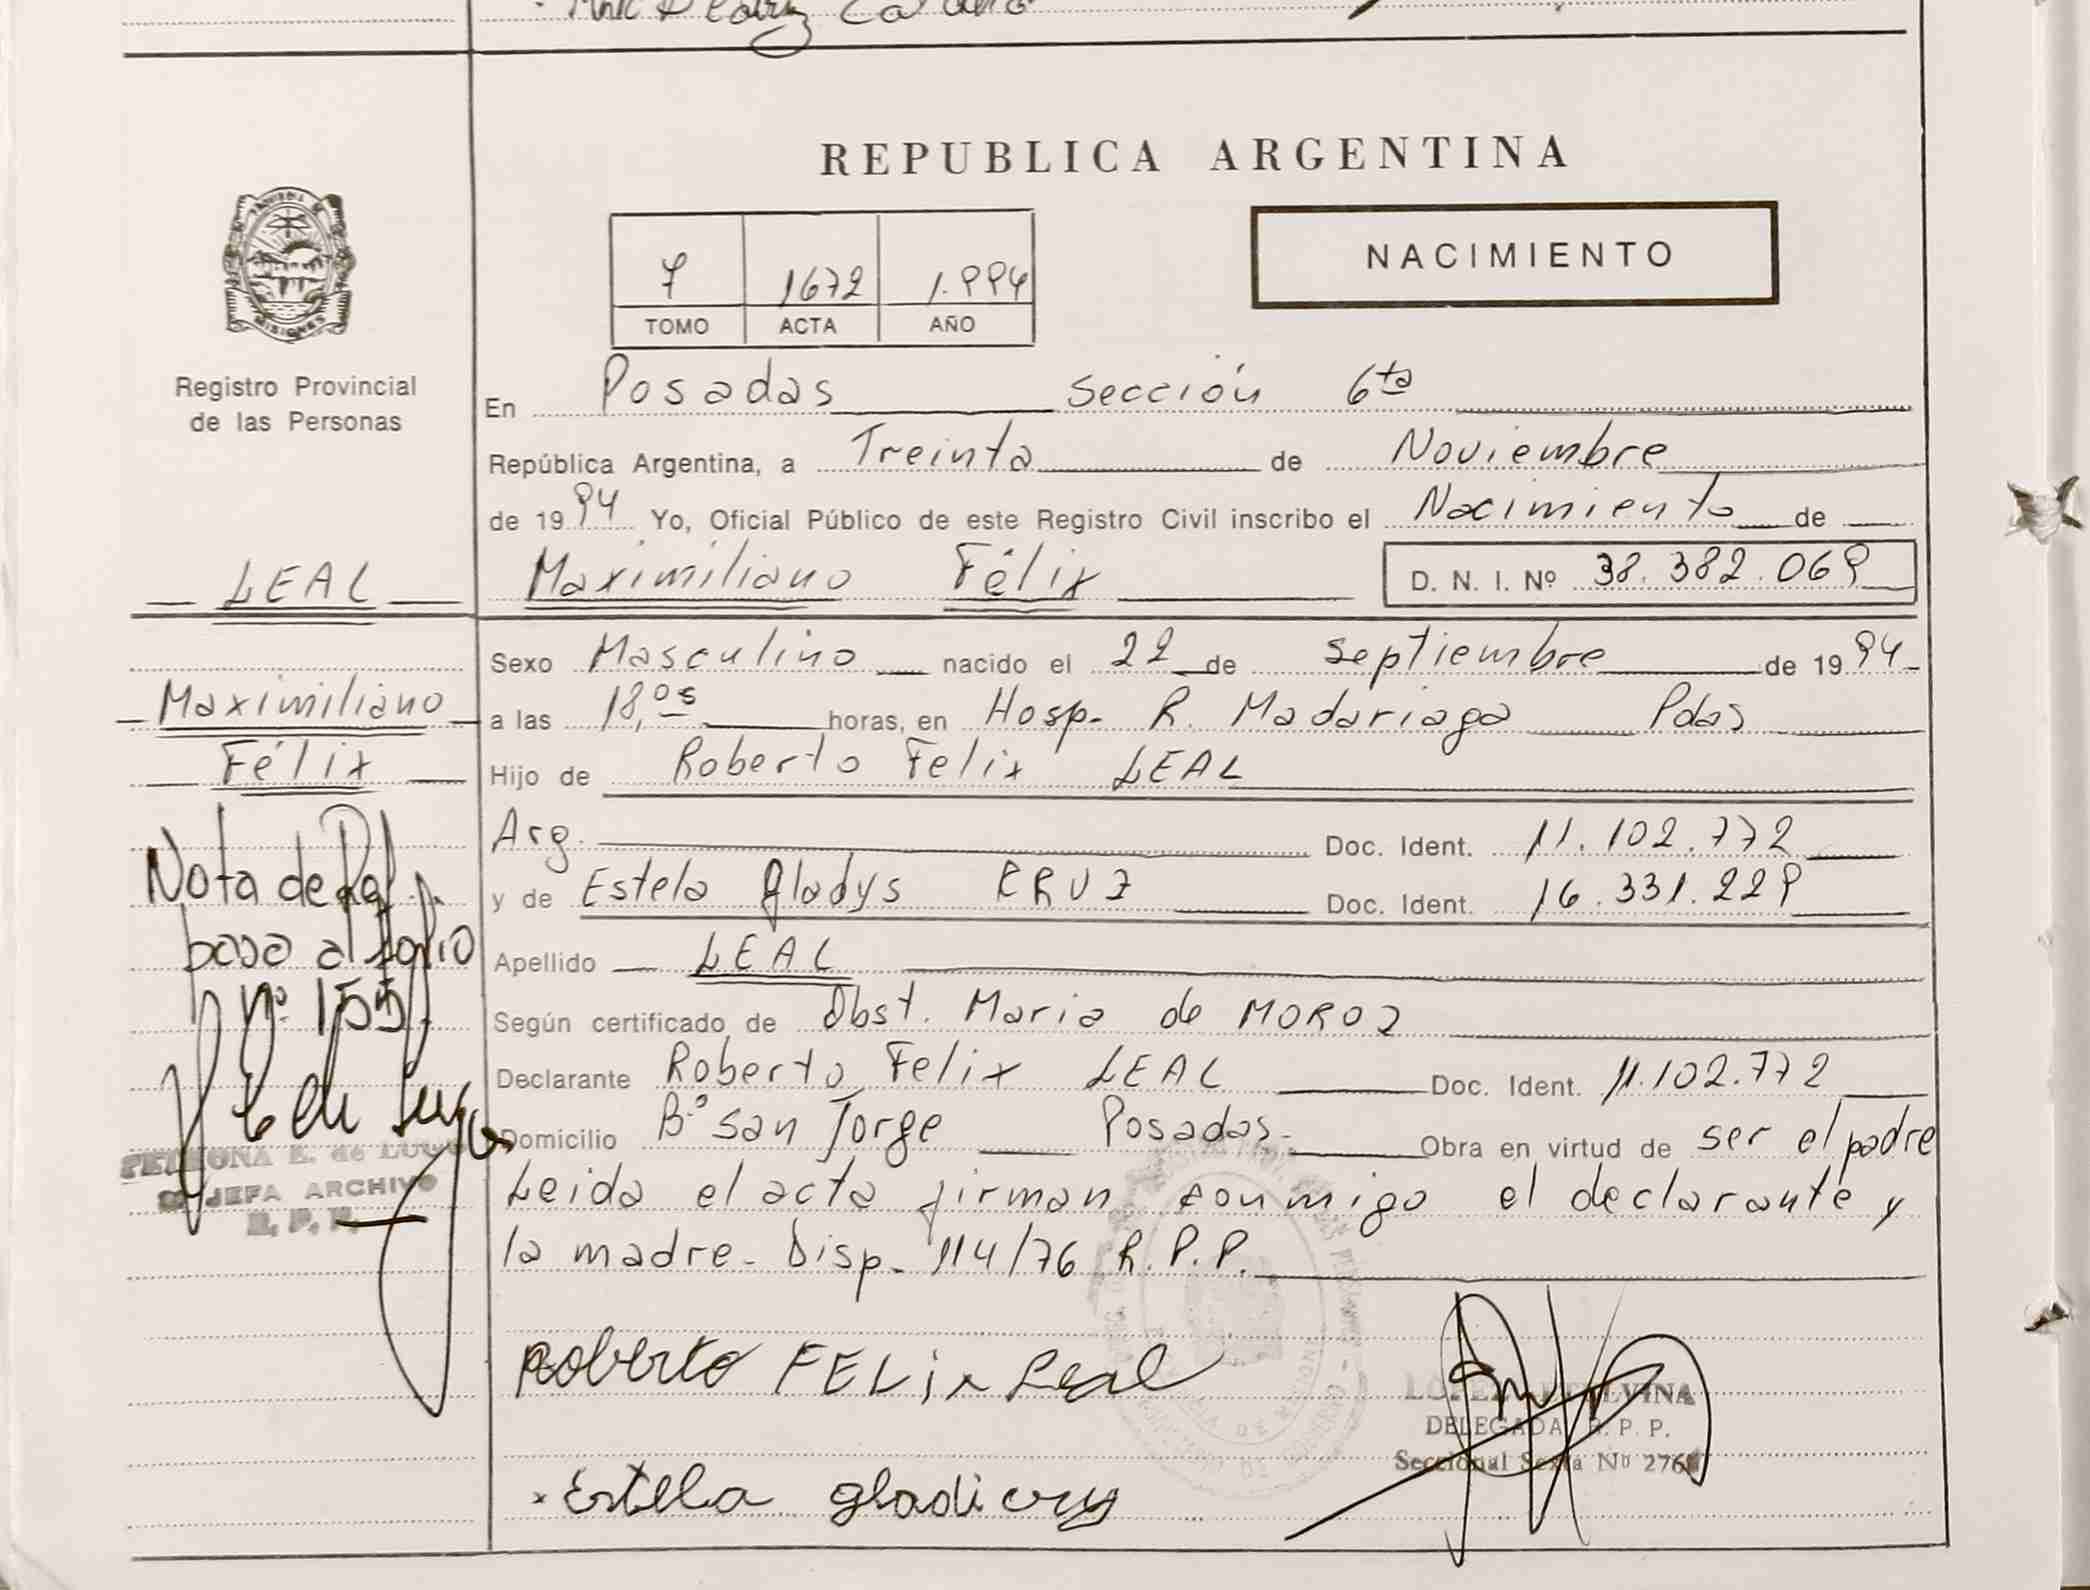 REPUBLICA ARGENTINA
NACIMIENTO
7 1672 1.994
TOMO ACTA AÑO
MISIONES
Registro Provincial
de las Personas
En Posadas Sección 6ta
República Argentina, a Treinta de Noviembre
de 1994 Yo, Oficial Público de este Registro Civil inscribo el Nacimiento de
LEAL Maximiliano Félix D. N. I. Nº 38.382.069
Sexo Masculino nacido el 22 de Septiembre de 1994
Maximiliano
a las 18,05 horas, en Hosp. R. Madariaga Pdas
Félix
Hijo de Roberto Felix LEAL
Arg. Doc. Ident. 11.102.772
Nota de Ref.
y de Estela Gladys CRUZ Doc. Ident. 16.331.229
paso al folio
Apellido LEAL
Nº 155
Según certificado de Obst. Maria de MOROZ
Declarante Roberto Felix LEAL Doc. Ident. 11.102.772
Domicilio Bº San Jorge Posadas- Obra en virtud de ser el padre
E. de LUGO
JEFA ARCHIVO
R. P. P.
Leida el acta firman conmigo el declarante y
la madre- Disp- 114/76 R.P.P.
Roberto FELix Leal
LOPEZ ETELVINA
DELEGADA R. P. P.
Seccional Sexta Nº 276
Estela gladi cruz